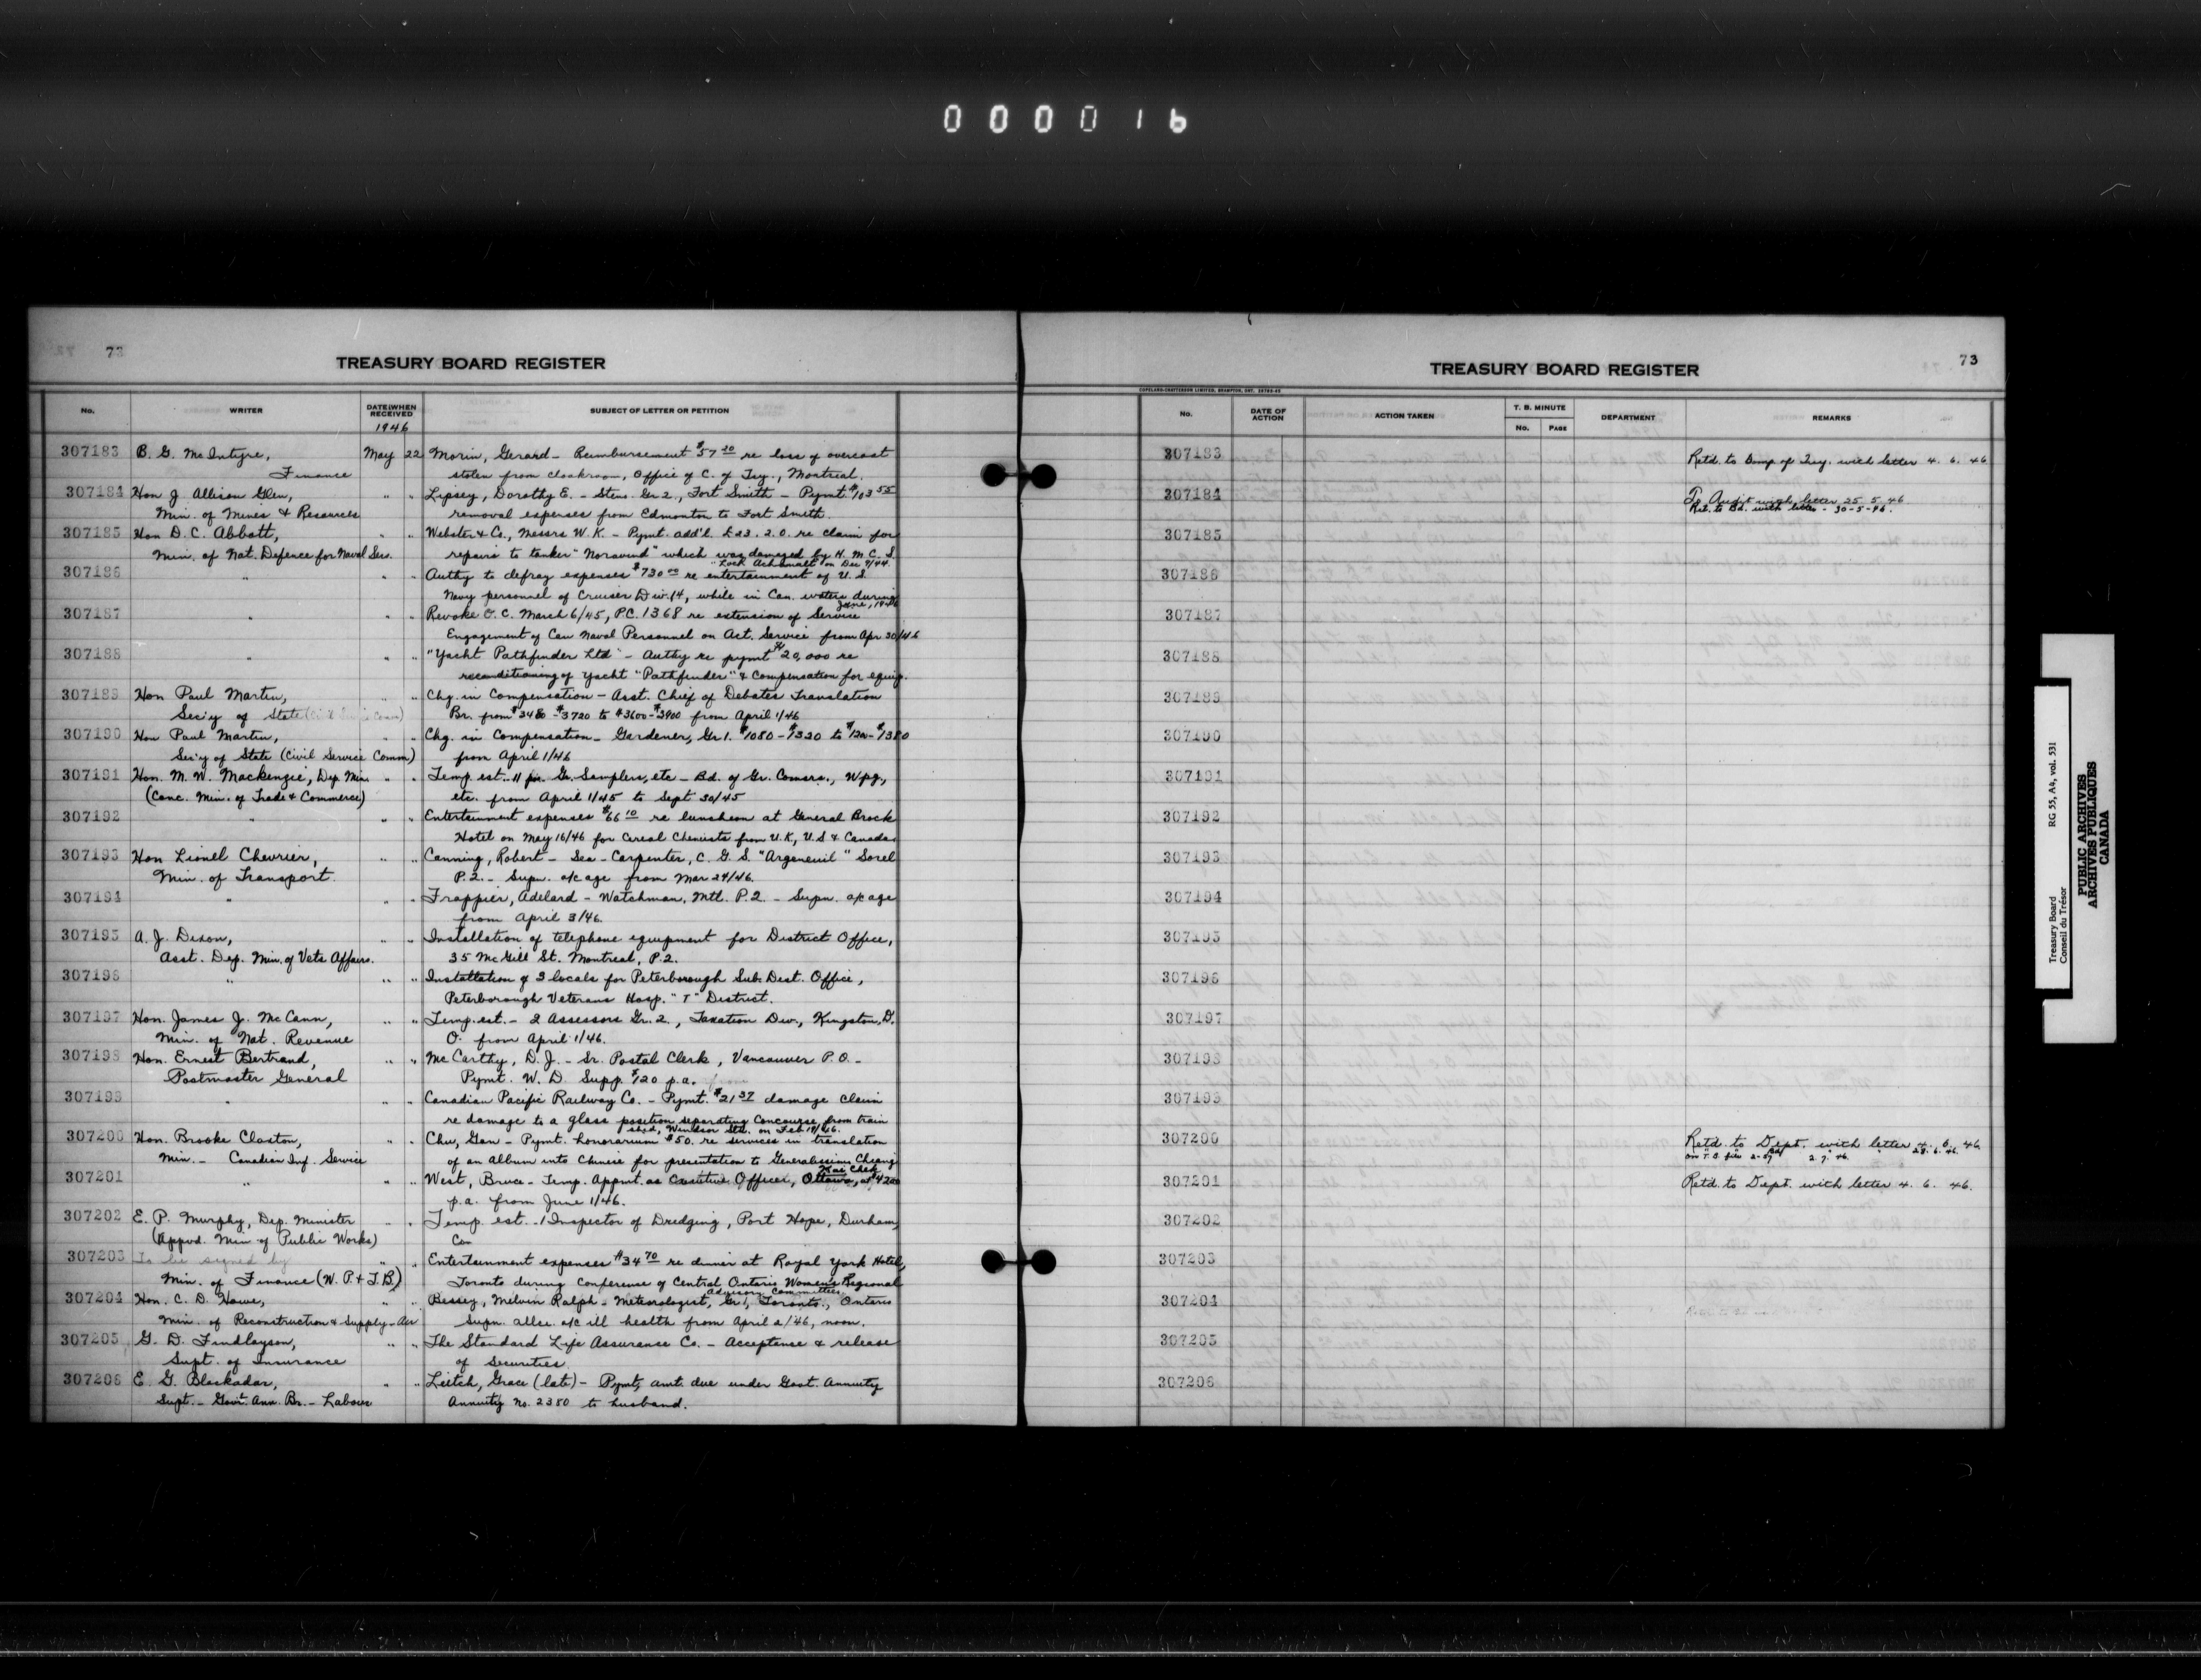 000016
73
TREASURY BOARD REGISTER
No. WRITER DATE WHEN RECEIVED SUBJECT OF LETTER OR PETITION
1946
307183 B. G. McIntyre, May 22 Morin, Gerard - Reimbursement $57 20 re loss of overcoat
Finance stolen from cloakroom, Office of C. of Tsy., Montreal.
307184 Hon J Allison Glen, " " Lipsey, Dorothy E. - Steno. Gr 2., Fort Smith - Pymt. $103 55
Min. of Mines & Resources removal expenses from Edmonton to Fort Smith.
307185 Hon D. C. Abbott, " " Webster & Co., Messrs W. K. - Pymt. add'l £23.2.0. re claim for
Min. of Nat. Defence for Naval Ser. repairs to tanker "Noravind" which was damaged by H. M. C. S.
"Lock Achanalt" on Dec 9/44.
307186 " " " Authy to defray expenses $730 00 re entertainment of U. S.
Navy personnel of Cruiser Div. 14, while in Can. waters during
June, 1946
307187 " " " Revoke O. C. March 6/45, P.C. 1368 re extension of Service
Engagement of Can Naval Personnel on Act. Service from Apr 30/46
307188 " " " "Yacht Pathfinder Ltd" - Authy re pymt $20,000 re
reconditioning of yacht "Pathfinder" & compensation for equip.
307189 Hon Paul Martin, " " Chg. in Compensation - Asst. Chief of Debates Translation
Sec'y of State Br. from $3480 - $3720 to $3600 - $3900 from April 1/46
307190 Hon Paul Martin, " " Chg. in Compensation - Gardener, Gr 1. $1080 - $1320 to $1200 - $1380
Sec'y of State (Civil Service Comm) from April 1/46
307191 Hon. M. W. Mackenzie, Dep. Min. " " Temp. est. 11 Gr. Samplers, etc - Bd. of Gr. Comsrs., Wpg,
(Conc. Min. of Trade & Commerce) etc. from April 1/45 to Sept 30/45
307192 " " " Entertainment expenses $66 10 re luncheon at General Brock
Hotel on May 16/46 for Cereal Chemists from U.K, U.S & Canada
307193 Hon Lionel Chevrier, " " Canning, Robert - Sea - Carpenter, C. G. S. "Argeneuil" Sorel
Min. of Transport. P.2. - Supn. a/c age from Mar 24/46.
307194 " " " Frappier, Adelard - Watchman, Mtl. P.2. - Supn. a/c age
from April 3/46.
307195 A. J. Dixon, " " Installation of telephone equipment for District Office,
Asst. Dep. Min. of Vets Affairs. 35 McGill St. Montreal, P.2.
307196 " " " Installation of 3 locals for Peterborough Sub. Dist. Office,
Peterborough Veterans Hosp. "T" District.
307197 Hon. James J. McCann, " " Temp. est. - 2 Assessors Gr. 2., Taxation Div., Kingston, D.
Min. of Nat. Revenue O. from April 1/46.
307198 Hon. Ernest Bertrand, " " McCarthy, D. J. - Sr. Postal Clerk, Vancouver P. O. -
Postmaster General Pymt. W. D. Supp. $120 p.a.
307199 " " " Canadian Pacific Railway Co. - Pymt. $21 37 damage claim
re damage to a glass position separating Concourse from train
shed, Windsor Stn. on Feb 18/46.
307200 Hon. Brooke Claxton, " " Chu, Gan - Pymt. honorarium $50. re services in translation
Min. - Canadian Inf. Service of an album into Chinese for presentation to Generalissimo Chiang
Kai Chek
307201 " " " West, Bruce - Temp. Appmt. as Executive Officer, Ottawa, at $4200
p.a. from June 1/46.
307202 E. P. Murphy, Dep. Minister " " Temp. est. - 1 Inspector of Dredging, Port Hope, Durham
(Appvd. Min of Public Works) Co
307203 To be signed by " " Entertainment expenses $34 70 re dinner at Royal York Hotel,
Min. of Finance (W. P. & T. B.) Toronto during Conference of Central Ontario Women's Regional
Advisory Committee
307204 Hon. C. D. Howe, " " Bessey, Melvin Ralph - Meteorologist, Gr 1, Toronto, Ontario
Min. of Reconstruction & Supply - Air Supn. allce. a/c ill health from April 2/46, noon.
307205 G. D. Findlayson, " " The Standard Life Assurance Co. - Acceptance & release
Supt. of Insurance of securities.
307206 E. G. Blackadar, " " Leitch, Grace (late) - Pymt, amt. due under Govt. Annuity
Supt. - Govt. Ann. Br. - Labour Annuity no. 2350 to husband.
73
TREASURY BOARD REGISTER
COPELAND-CHATTERSON LIMITED, BRAMPTON, ONT.
No. DATE OF ACTION ACTION TAKEN T. B. MINUTE DEPARTMENT REMARKS
No. PAGE
307183 Retd. to Comp of Tsy. with letter 4. 6. 46
307184 To Audit with letter 25-5-46
Ret. to Bd. with letter - 30-5-46.
307185
307186
307187
307188
307189
307190
307191
307192
307193
307194
307195
307196
307197
307198
307199
307200 Retd. to Dept. with letter 4. 6. 46
307201 Retd. to Dept. with letter 4. 6. 46.
307202
307203
307204
307205
307206
Treasury Board RG 55, A4, vol. 531
Conseil du Trésor
PUBLIC ARCHIVES
ARCHIVES PUBLIQUES
CANADA